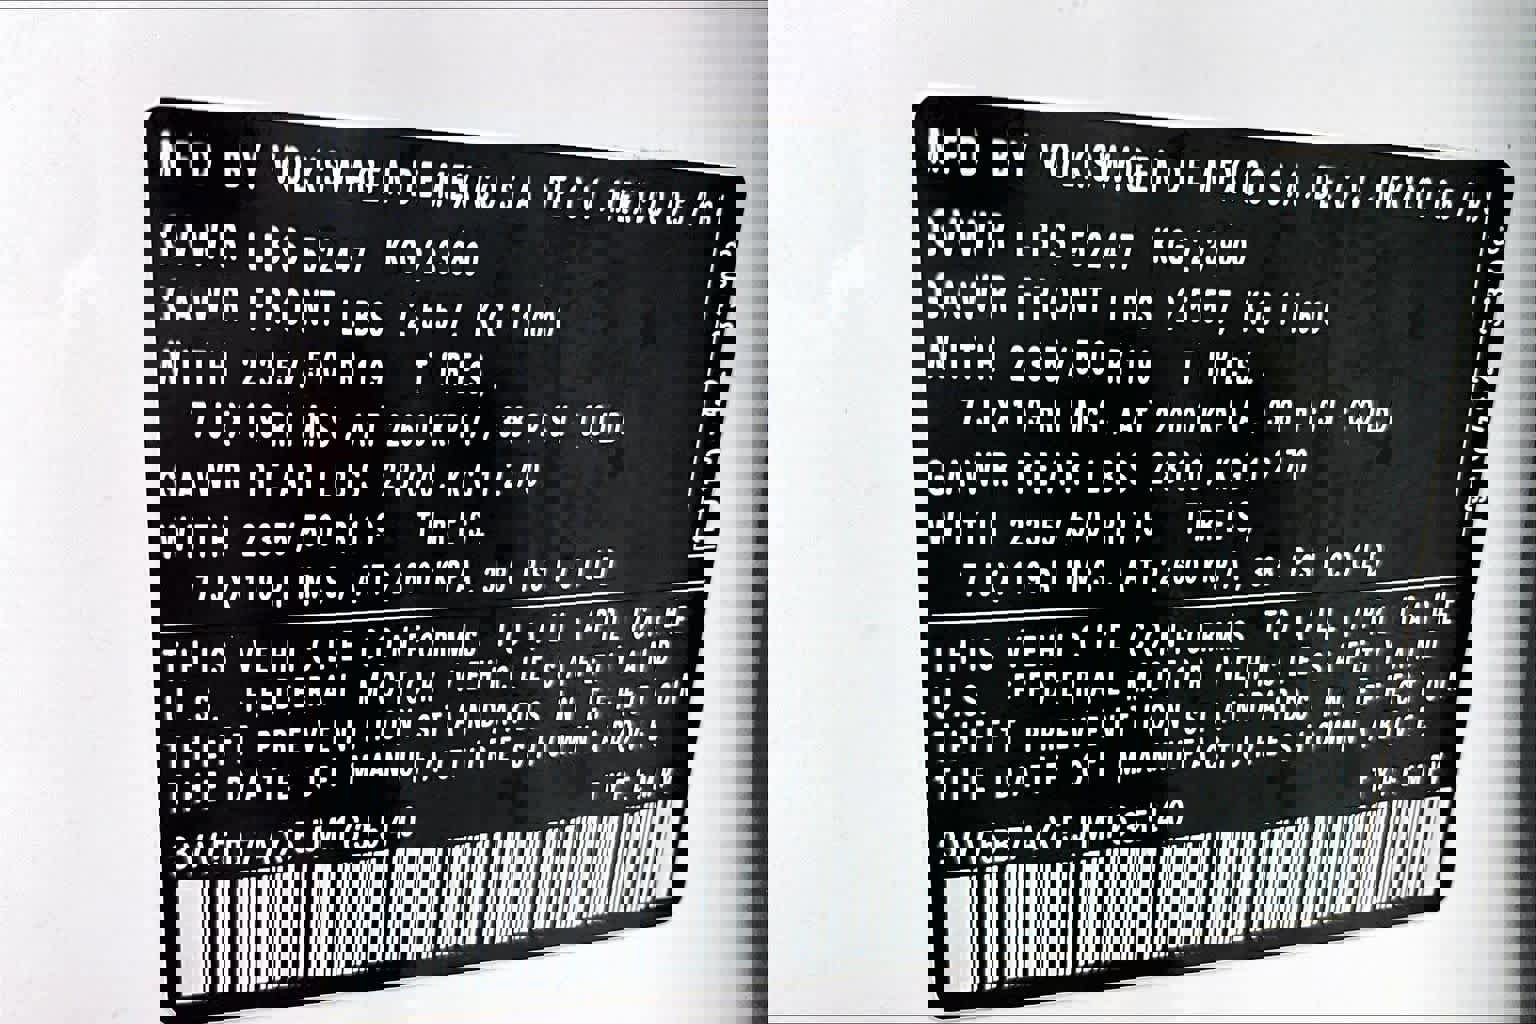 MFD BY VOLKSWAGEN DE MEXICO S.A. DE C.V. MEXICO
GVWR LBS 5247 KG 2380
GAWR FRONT LBS 2557, KG 1160
WITH 235/50 R19 TIRES,
7JX19 RIMS, AT 260 KPA, 38 PSI COLD
GAWR REAR LBS KG
WITH 235/50 R19 TIRES,
7JX19 RIMS, AT 260 KPA, 38 PSI COLD
THIS VEHICLE CONFORMS TO ALL APPLICABLE
U.S. FEDERAL MOTOR VEHICLE SAFETY AND
THEFT PREVENTION STANDARDS IN EFFECT ON
THE DATE OF MANUFACTURE SHOWN ABOVE
TYPE: MPV
MFD BY VOLKSWAGEN DE MEXICO S.A. DE C.V. MEXICO
GVWR LBS 5247 KG 2380
GAWR FRONT LBS 2557, KG 1160
WITH 235/50 R19 TIRES,
7JX19 RIMS, AT 260 KPA, 38 PSI COLD
GAWR REAR LBS KG
WITH 235/50 R19 TIRES,
7JX19 RIMS, AT 260 KPA, 38 PSI COLD
THIS VEHICLE CONFORMS TO ALL APPLICABLE
U.S. FEDERAL MOTOR VEHICLE SAFETY AND
THEFT PREVENTION STANDARDS IN EFFECT ON
THE DATE OF MANUFACTURE SHOWN ABOVE
TYPE: MPV